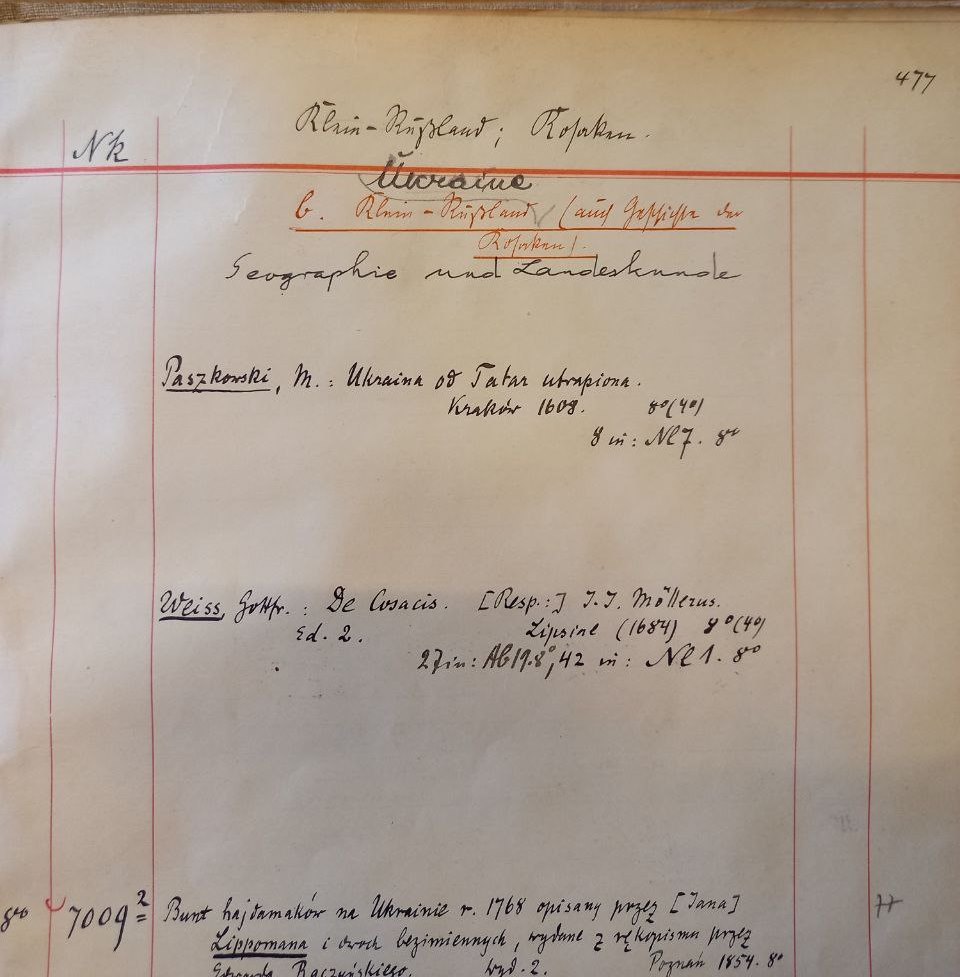 477
Nk
Klein-Rußland; Kosaken.
Ukraine
b. Klein-Rußland (auch Geschichte der
Kosaken).
Geographie und Landeskunde
Paszkowski, M.: Ukraina od Tatar utrapiona.
Kraków 1608. 8°(4°)
8 in: Nl 7. 8°
Weiss, Gottfr.: De Cosacis. [Resp.:] J. J. Möllerus.
Ed. 2. Lipsiae (1684) 8°(4°)
27 in: Ab 19. 8°, 42 in: Nl 1. 8°
8vo 7009² Bunt hajdamaków na Ukrainie r. 1768 opisany przez [Jana]
Lippomana i dwoch bezimiennych, wydane z rękopisma przez
Edwarda Raczyńskiego. Wyd. 2. Poznań 1854. 8°